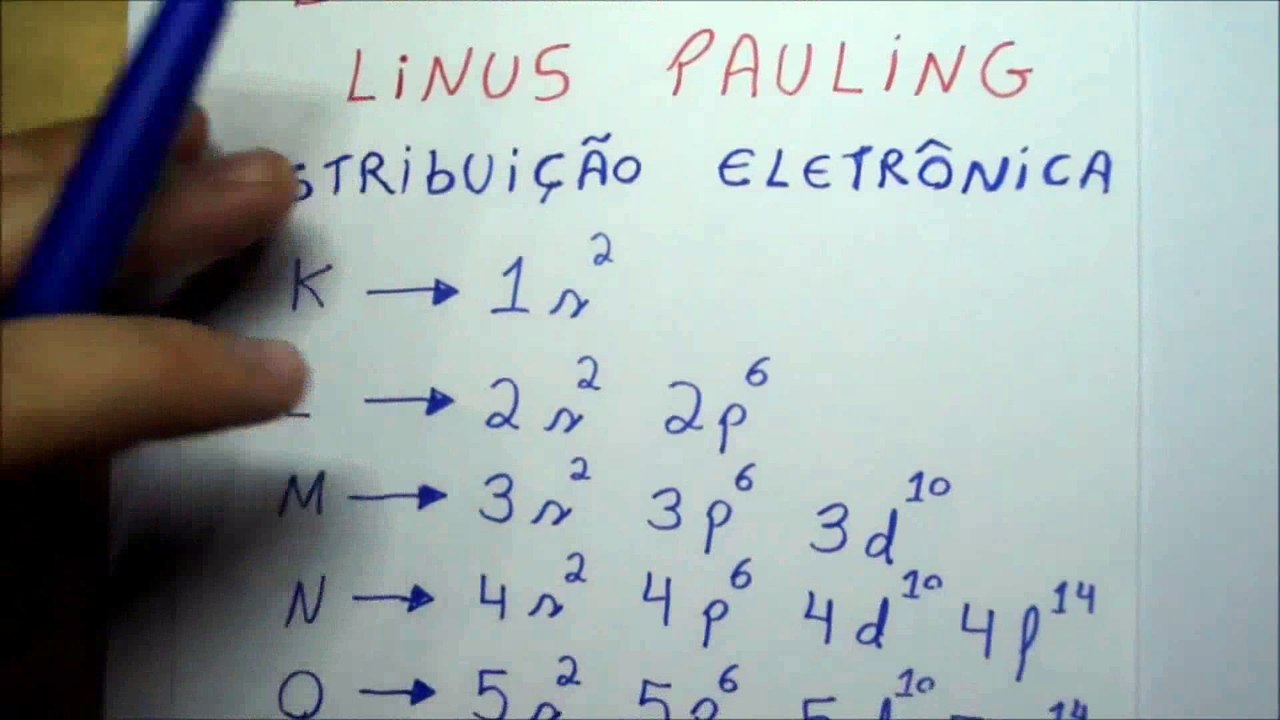 LiNUS PAULiNG
STRibUiÇÃO ELETRÔNiCA
K → 1s²
→ 2s² 2p⁶
M → 3s² 3p⁶ 3d¹⁰
N → 4s² 4p⁶ 4d¹⁰ 4p¹⁴
O → 5s² 5p⁶ 5d¹⁰ 14